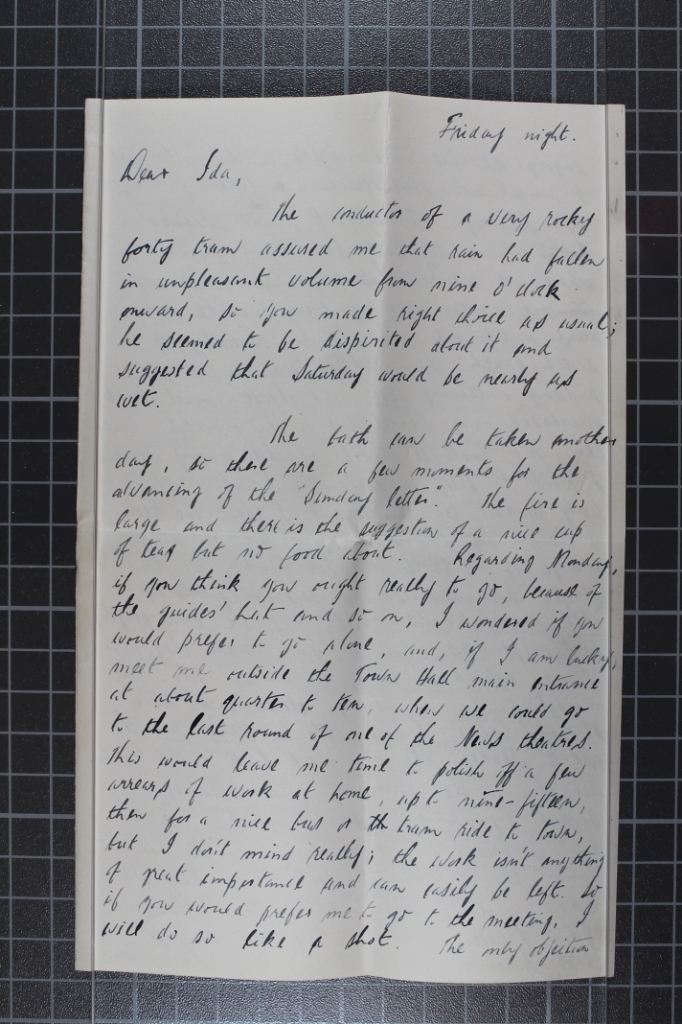 Friday night.
Dear Ida,
The conductor of a very rocky
forty tram assured me that rain had fallen
in unpleasant volume from nine o'clock
onward, so you made right choice as usual;
he seemed to be dispirited about it and
suggested that Saturday would be nearly as
wet.
The bath can be taken another
day, so there are a few moments for the
advancing of the "Sunday letter". The fire is
large and there is the suggestion of a nice cup
of tea, but no food about. Regarding Monday,
if you think you ought really to go, because of
the guides' hut and so on, I wondered if you
would prefer to go alone, and, if I am lucky,
meet me outside the Town Hall main entrance
at about quarter to ten, when we could go
to the last round of one of the News theatres.
This would leave me time to polish off a few
arrears of work at home, up to nine-fifteen,
then for a nice bus or tram ride to town,
but I don't mind really; the work isn't anything
of great importance and can easily be left. So
if you would prefer me to go to the meeting, I
will do so like a shot. The only objection